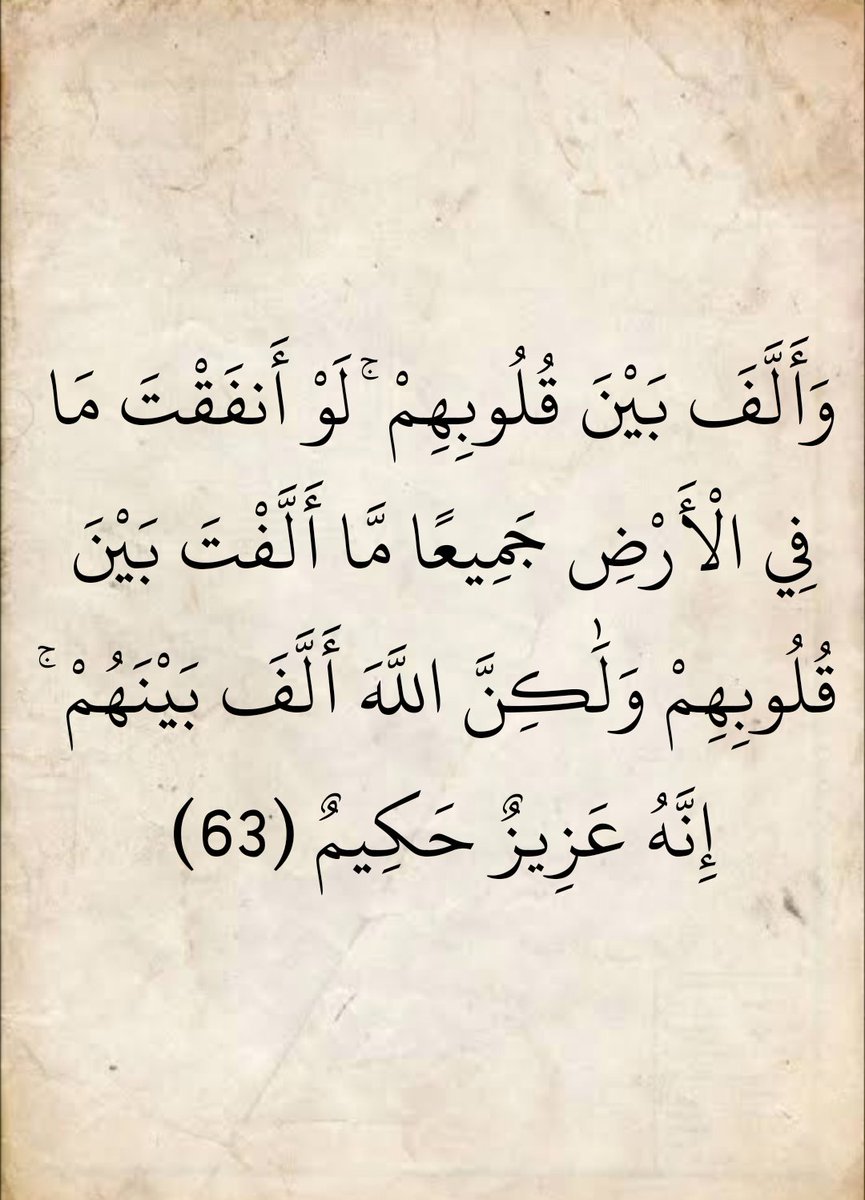 وَأَلَّفَ بَيْنَ قُلُوبِهِمْ ۚ لَوْ أَنفَقْتَ مَا
فِي الْأَرْضِ جَمِيعًا مَّا أَلَّفْتَ بَيْنَ
قُلُوبِهِمْ وَلَٰكِنَّ اللَّهَ أَلَّفَ بَيْنَهُمْ ۚ
إِنَّهُ عَزِيزٌ حَكِيمٌ (63)